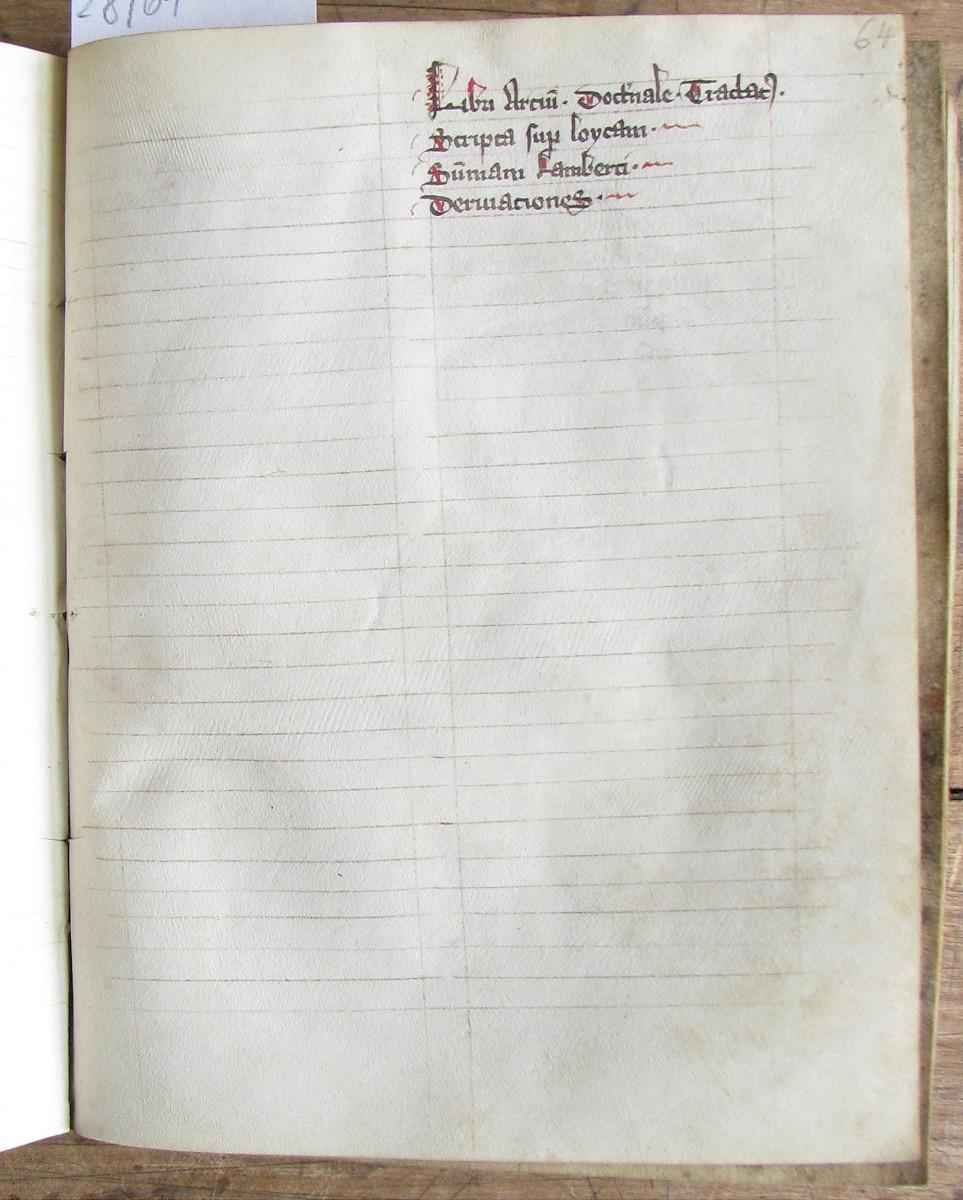 28/64
64
Libri Arciū · Doctͥnale · Tractat⁹.
Scripta sup̱ loycam ·
Sūmam Lamberti ·
Deriuaciones ·